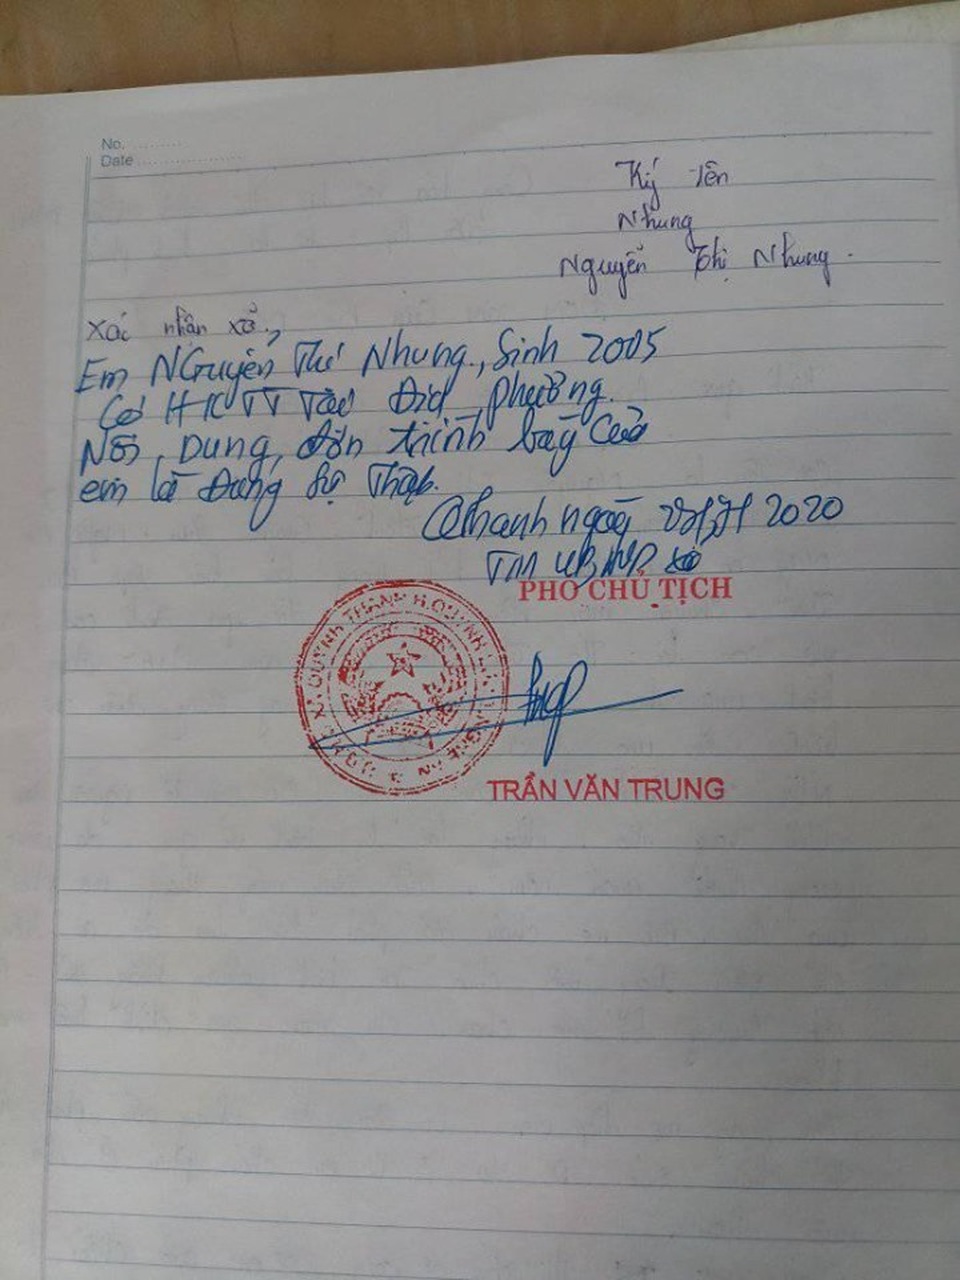 No. ..........
Date ....................
Ký tên
Nhung
Nguyễn Thị Nhung.
Xác nhận xã,
Em Nguyễn Thị Nhung, Sinh 2005
Có HKTT Tại Địa phương.
Nội Dung đơn trình bày Của
em là Đúng Sự Thật.
Q.Thanh ngày 2020
TM UBND xã
PHÓ CHỦ TỊCH
X. QUỲNH THANH H. QUỲNH LƯU T. NGHỆ AN
TRẦN VĂN TRUNG